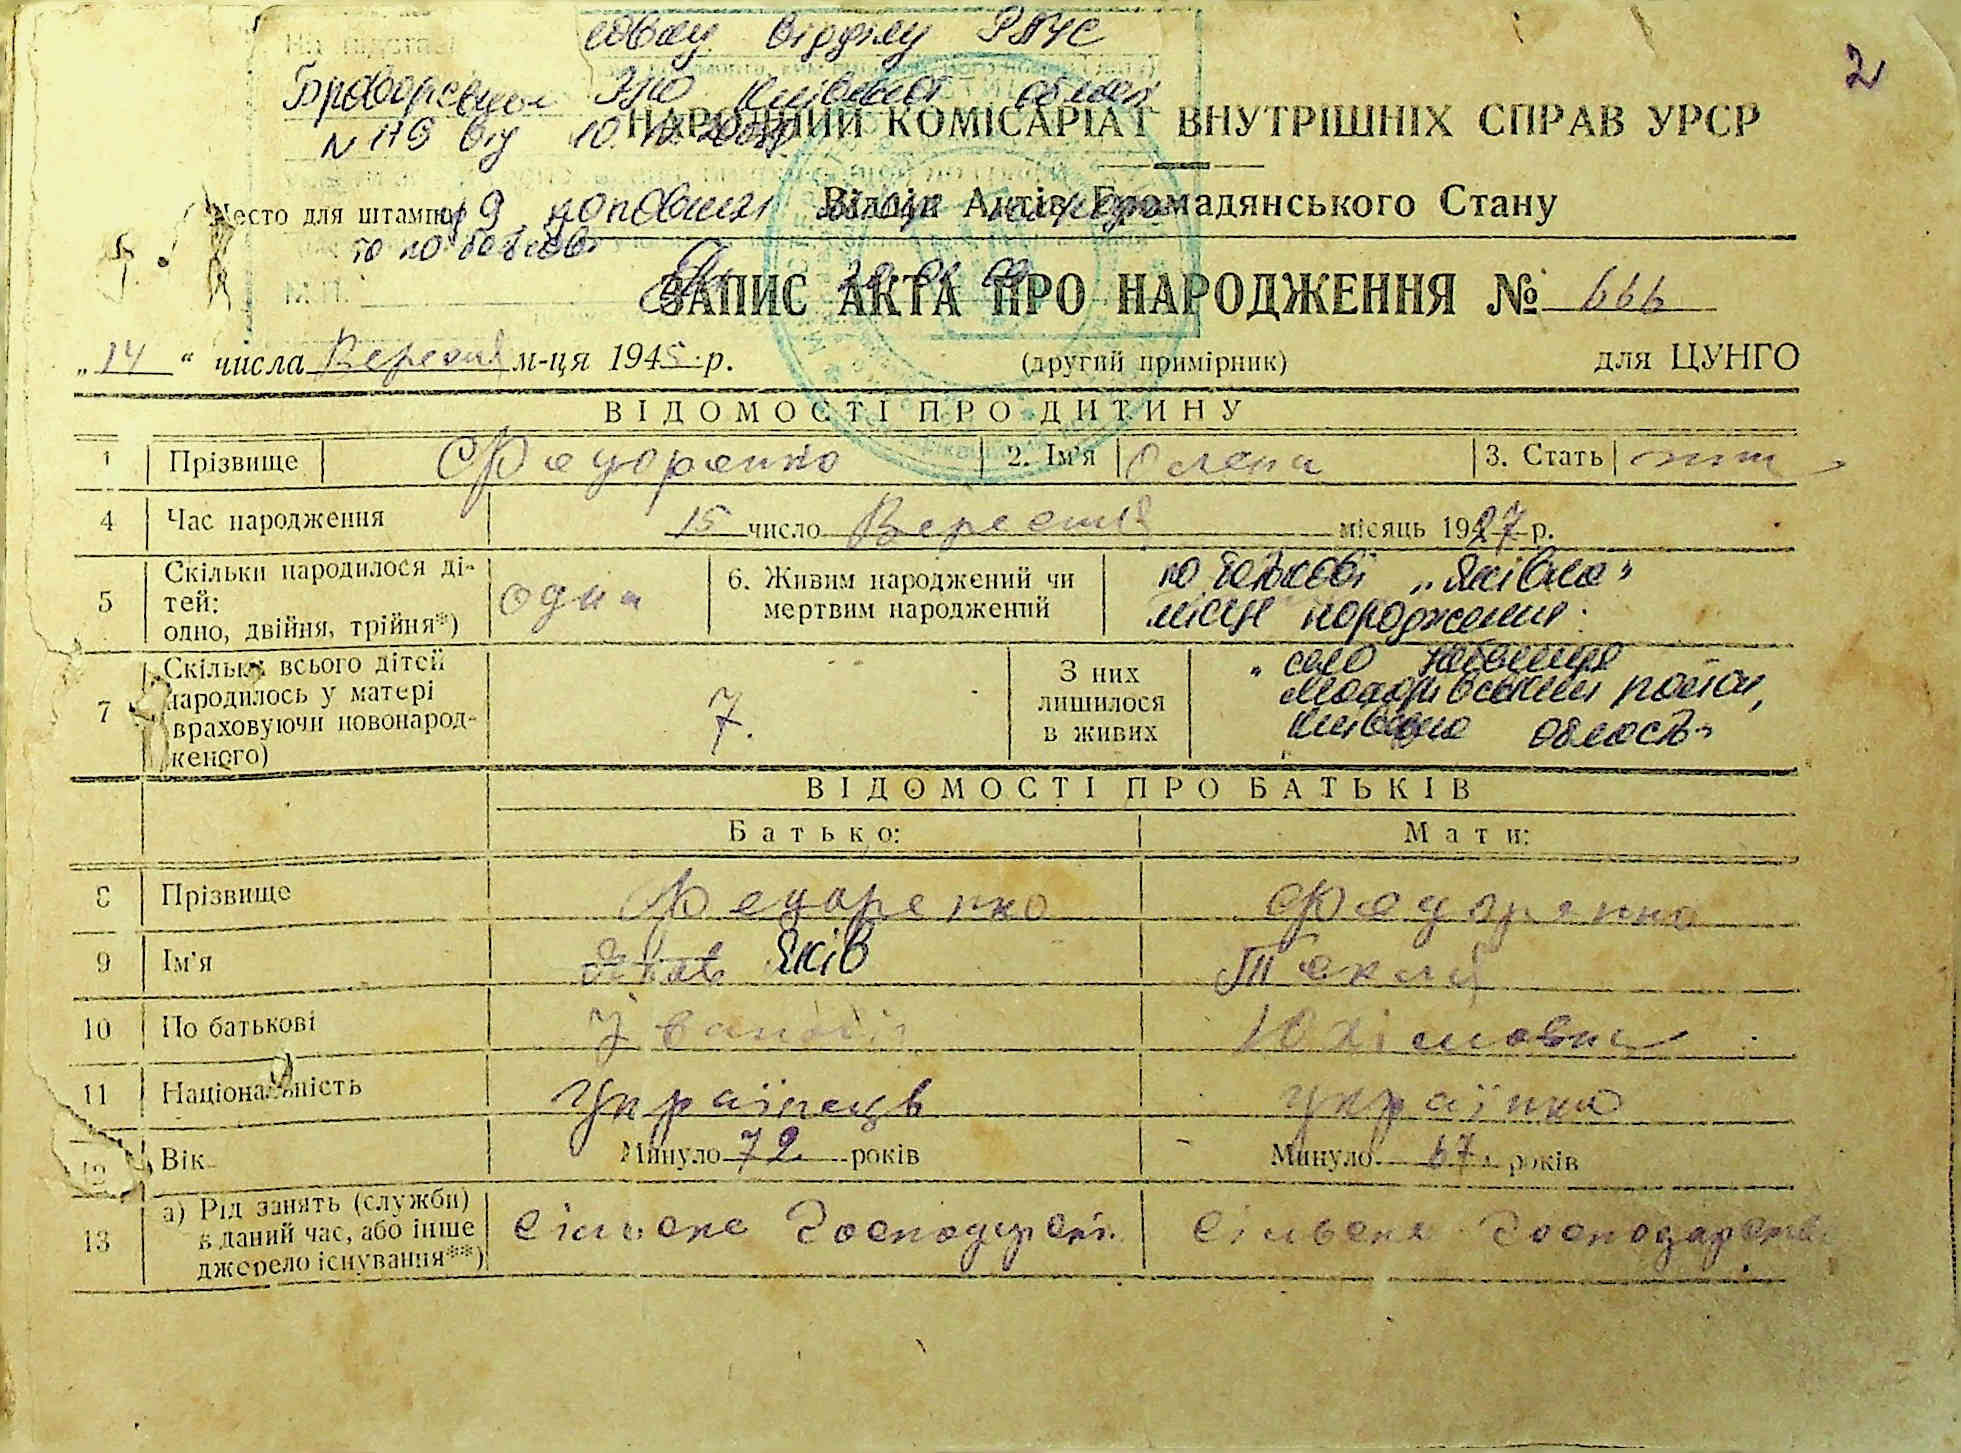 відділу РАЦС
Броварсько ЗАО Київської області
N 119 від 10.12.2008р
2
НАРОДНИЙ КОМІСАРІАТ ВНУТРІШНІХ СПРАВ УРСР
Место для штампу
Відділ Актів Громадянського Стану
по батькові
ЗАПИС АКТА ПРО НАРОДЖЕННЯ № 666
„14“ числа Вересня м-ця 1945 р. (другий примірник) для ЦУНГО
ВІДОМОСТІ ПРО ДИТИНУ
1 Прізвище Федоренко 2. Ім'я Олена 3. Стать жін
4 Час народження 15 число Вересня місяць 1927 р.
5 Скільки народилося дітей: одно, двійня, трійня*) одна 6. Живим народжений чи мертвим народжений по батькові „Яківна"
місце народження:
7 Скільки всього дітей народилось у матері (враховуючи новонародженого) 7. З них лишилося в живих село
Макарівський район,
Київська область
ВІДОМОСТІ ПРО БАТЬКІВ
Батько: Мати:
8 Прізвище Федоренко Федоренко
9 Ім'я Яків Текля
10 По батькові Іванович Юхімовна
11 Національність Українець українка
12 Вік Минуло 72. років Минуло 67. років
13 а) Рід занять (служби) в даний час, або інше джерело існування**) Сільське Господарств. Сільське Господарство